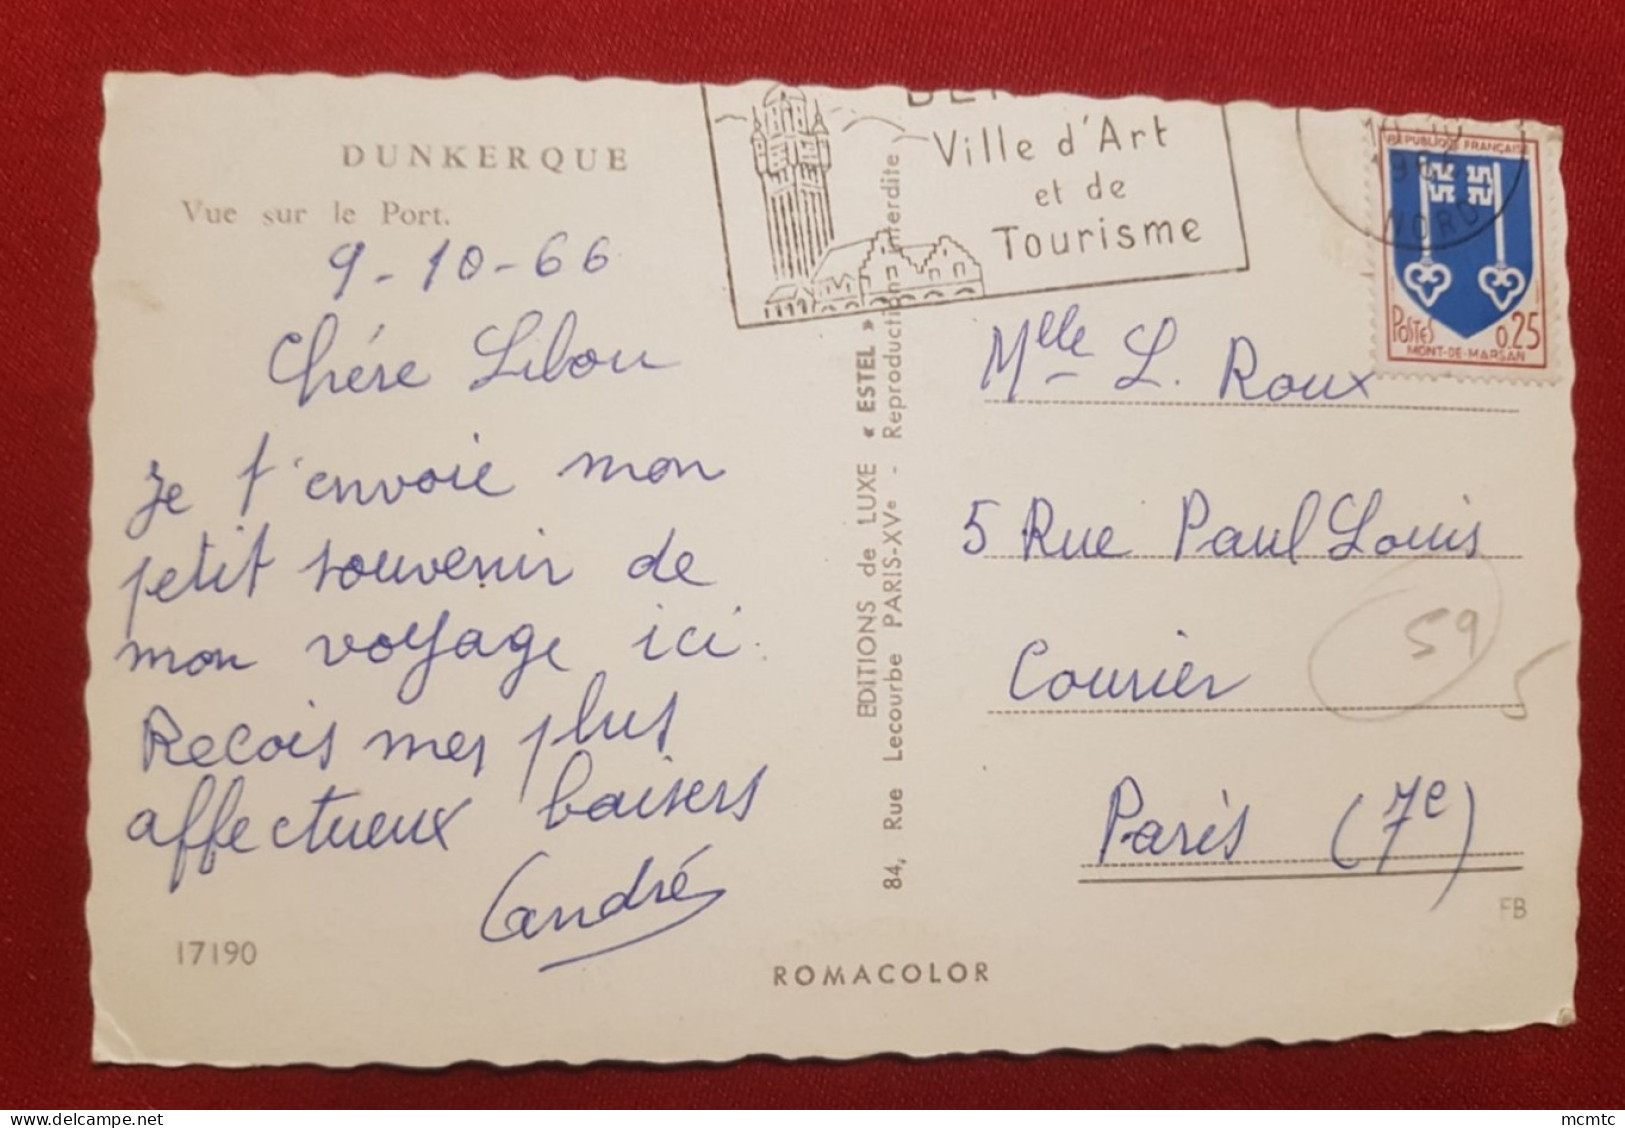 DUNKERQUE
Vue sur le Port.
9-10-66
Chére Lilou
Je t'envoie mon
petit souvenir de
mon voyage ici.
Recois mes plus
affectueux baisers
André
17190
Ville d'Art
et de
Tourisme
EDITIONS de LUXE « ESTEL »
84, Rue Lecourbe PARIS-XVe - Reproduction interdite
ROMACOLOR
NORD
REPUBLIQUE FRANÇAISE
POSTES 0,25
MONT-DE-MARSAN
Mlle L. Roux
5 Rue Paul Louis
Courier
Paris (7e)
59
5
FB
delcampe.net
mcmtc